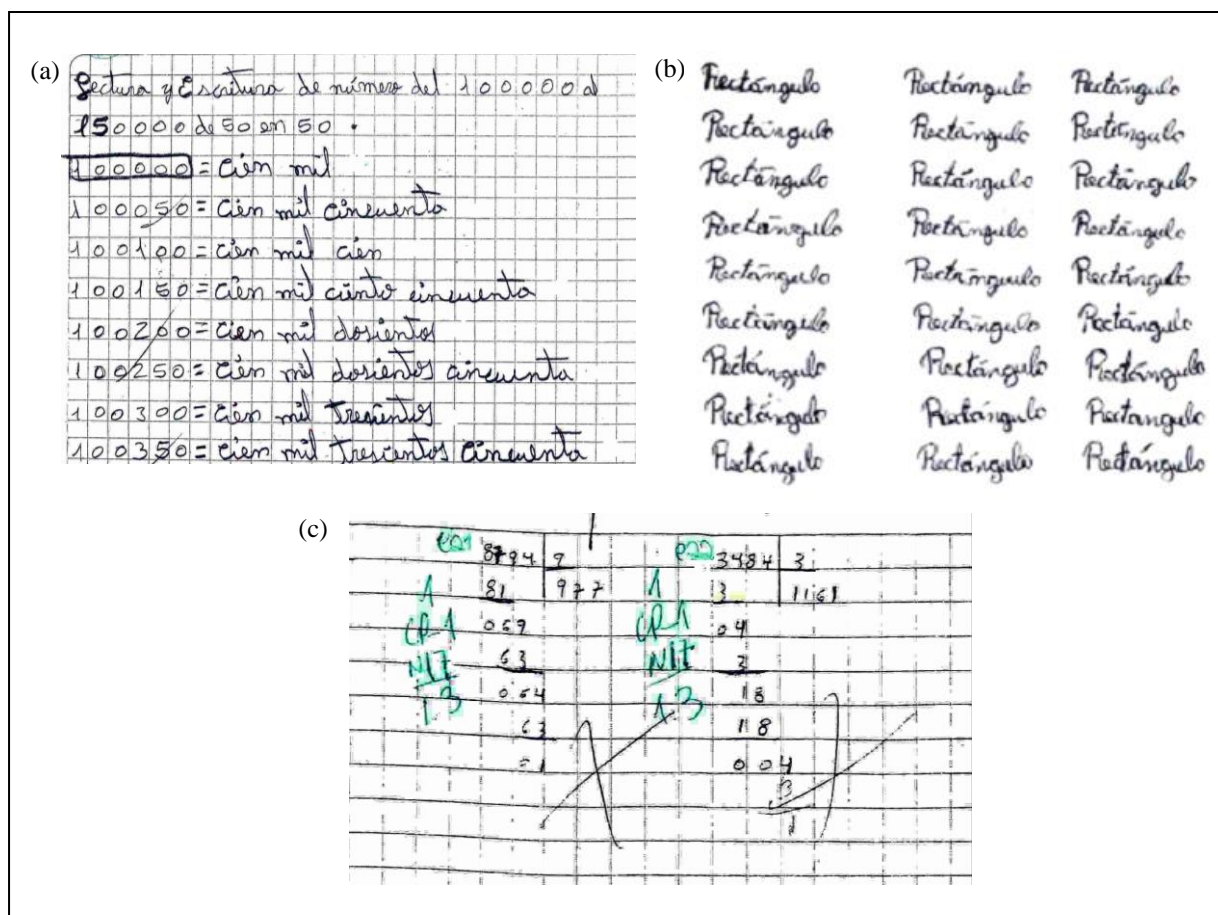 (a)
Lectura y Escritura de número del 100000 al
150000 de 50 en 50.
100000 = cien mil
100050 = cien mil cincuenta
100100 = cien mil cien
100150 = cien mil ciento cincuenta
100200 = cien mil dosientos
100250 = cien mil dosientos cincuenta
100300 = cien mil trescientos
100350 = cien mil trescientos cincuenta
(b)
Rectángulo Rectángulo Rectángulo
Rectángulo Rectángulo Rectángulo
Rectángulo Rectángulo Rectángulo
Rectángulo Rectángulo Rectángulo
Rectángulo Rectángulo Rectángulo
Rectángulo Rectángulo Rectángulo
Rectángulo Rectángulo Rectángulo
Rectángulo Rectángulo Rectángulo
Rectángulo Rectángulo Rectángulo
(c)
8794 9 3484 3
1 81 977 1 3 1161
CP-1 069 CP-1 04
N17 63 N17 3
1.3 064 1.3 18
63 18
1 004
3
1